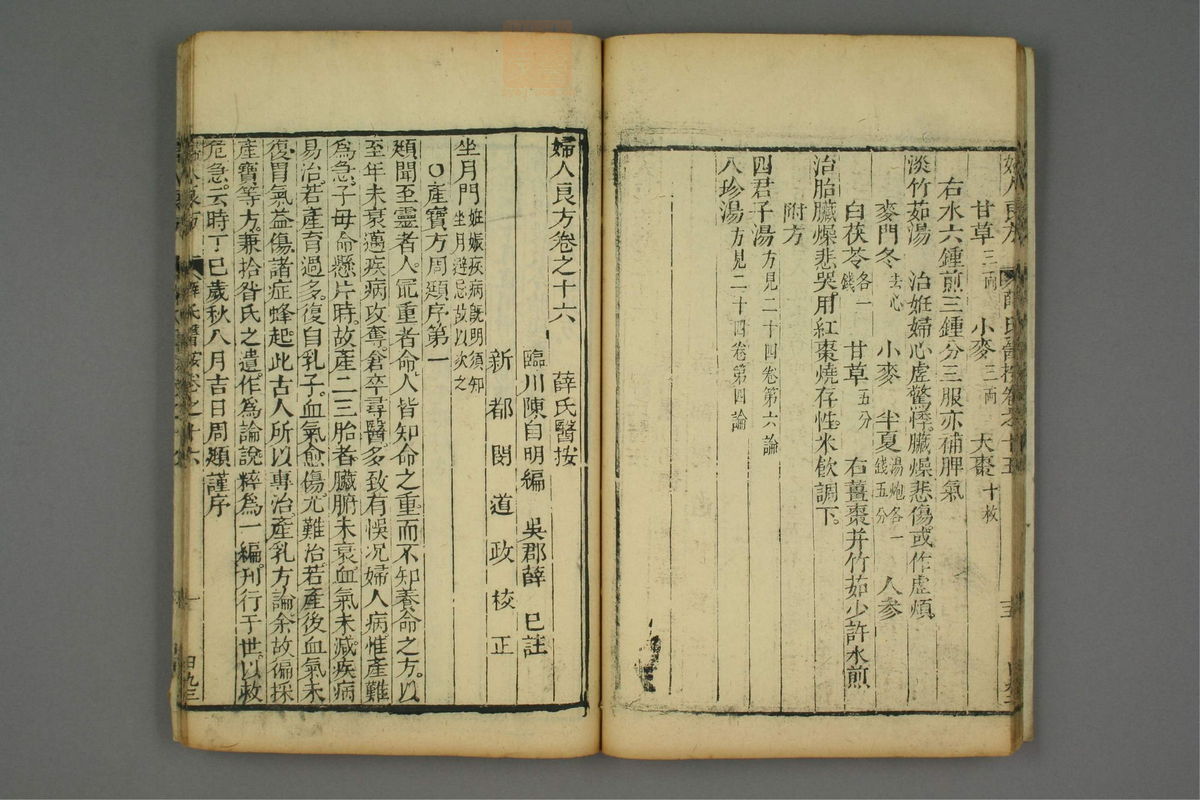 甘草三兩　小麥三兩　大棗十枚
右水六鍾煎三鍾分三服亦補脾氣
淡竹茹湯　治妊婦心虛驚悸臟燥悲傷或作虛煩
麥門冬去心　小麥　半夏湯炮各一錢五分　人參
白茯苓各一錢　甘草五分　右薑棗并竹茹少許水煎
治胎臟燥悲哭用紅棗燒存性米飲調下
附方
四君子湯方見二十四卷第六論
八珍湯方見二十四卷第四論
婦人良方卷之十六　薛氏醫按
臨川陳自明編　吳郡薛己註
新都閔道政校正
坐月門妊娠疾病旣明須知坐月避忌故以次之
○產寶方周頲序第一
頲聞至靈者人㝡重者命人皆知命之重而不知養命之方以
至年未衰邁疾病攻奪倉卒尋醫多致有悞况婦人病惟產難
爲急子毋命懸片時故產二三胎者臟腑未衰血氣未减疾病
易治若產育過多復自乳子血氣愈傷尤難治若產後血氣未
復胃氣益傷諸症蜂起此古人所以專治產乳方論余故徧採
產寶等方兼拾昝氏之遺作爲論說粹爲一編刊行于世以救
危急云時丁巳歲秋八月吉日周頲謹序